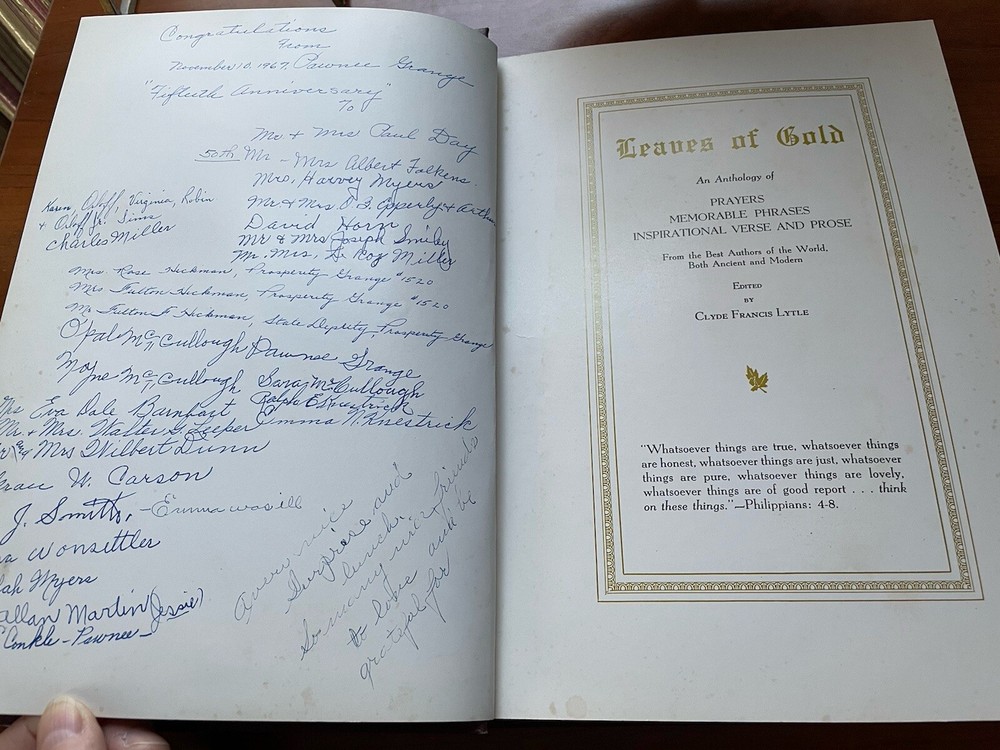 Congratulations
from
November 10, 1967, Pawnee Grange
"Fiftieth Anniversary"
To
Mr + Mrs Paul Day
50th Mr - Mrs Albert Folkens.
Mrs. Harvey Myers
Mr & Mrs O. I. Epperly +
David Horn
Mr & Mrs Joseph Smiley
Mr. Mrs. Le Roy Miller
Karen, Orloff, Virginia, Robin
+ Orloff Jr. Sims
Charles Miller
Mrs. Rose Hickman, Prosperity Grange #1520
Mrs Fulton Hickman, Prosperity Grange #1520
Mr Fulton F. Hickman, State Deputy, Prosperity Grange
Opal McCullough Pawnee Grange
Moyne McCullough Sara McCullough
Ralph E Knestrick
Mrs Eva Dale Barnhart
Mr. + Mrs. Walter G. Leeper Emma N. Knestrick
Mrs Wilbert Dunn
Grace W. Carson
J. Smith, - Emma was ill
Wonsettler
Myers
Allan Martin (Jessie)
Conkle - Pawnee -
A very nice
Surprise and
lunch.
So many nice friends
to have and be
grateful for
Leaves of Gold
An Anthology of
PRAYERS
MEMORABLE PHRASES
INSPIRATIONAL VERSE AND PROSE
From the Best Authors of the World,
Both Ancient and Modern
EDITED
BY
CLYDE FRANCIS LYTLE
"Whatsoever things are true, whatsoever things
are honest, whatsoever things are just, whatsoever
things are pure, whatsoever things are lovely,
whatsoever things are of good report . . . think
on these things."—Philippians: 4-8.